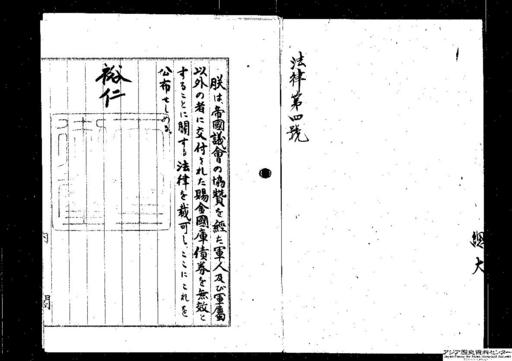 法律第四號
朕は、帝國議會の協贊を経た軍人及び軍屬
以外の者に交付された賜金國庫債券を無效と
することに関する法律を裁可し、ここにこれを
公布せしめる。
裕仁
内閣
アジア歴史資料センター